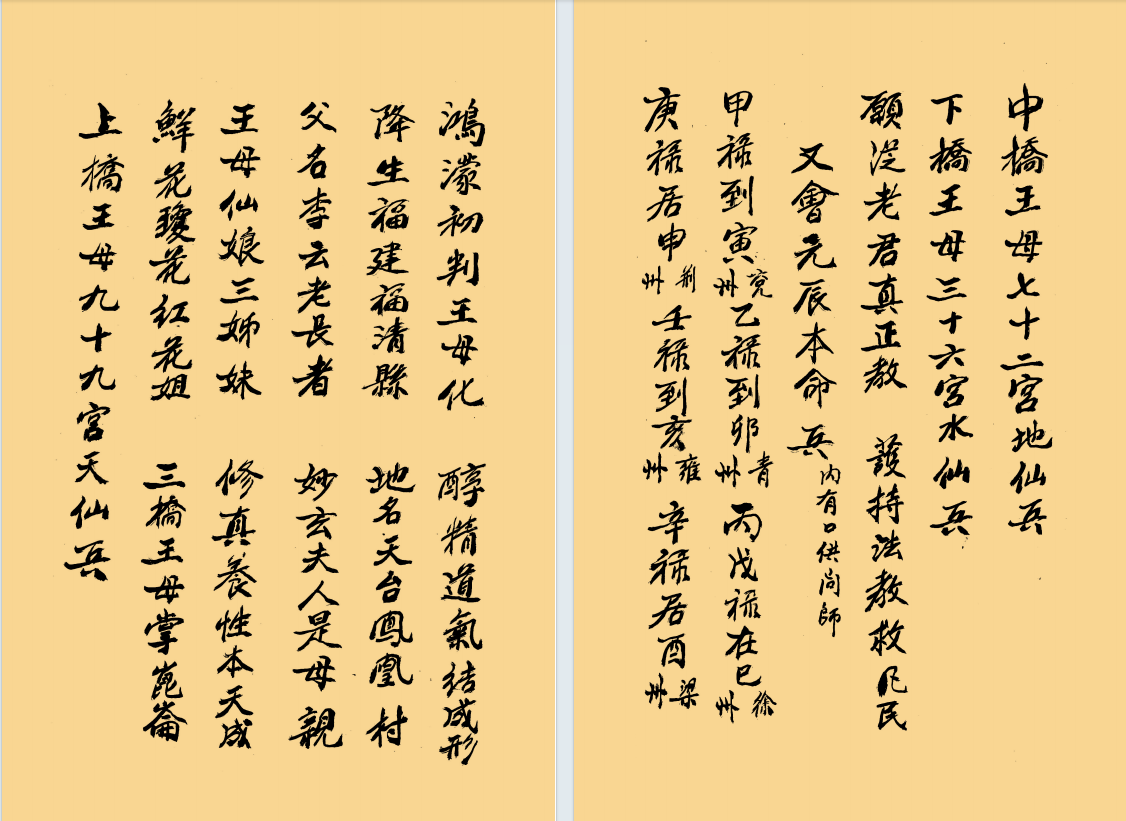 鴻濛初判王母化 醇精道氣結成形
降生福建福清縣 地名天台鳳凰村
父名李云老長者 妙玄夫人是母親
王母仙娘三姊妹 修真養性本天成
鮮花瓊花紅花姐 三橋王母掌崑崙
上橋王母九十九宮天仙兵
中橋王母七十二宮地仙兵
下橋王母三十六宮水仙兵
願從老君真正教 護持法教救凡民
又會元辰本命兵 內有口供問師
甲禄到寅兗州 乙禄到卯青州 丙戊禄在巳徐州
庚禄居申荊州 壬禄到亥雍州 辛禄居酉梁州